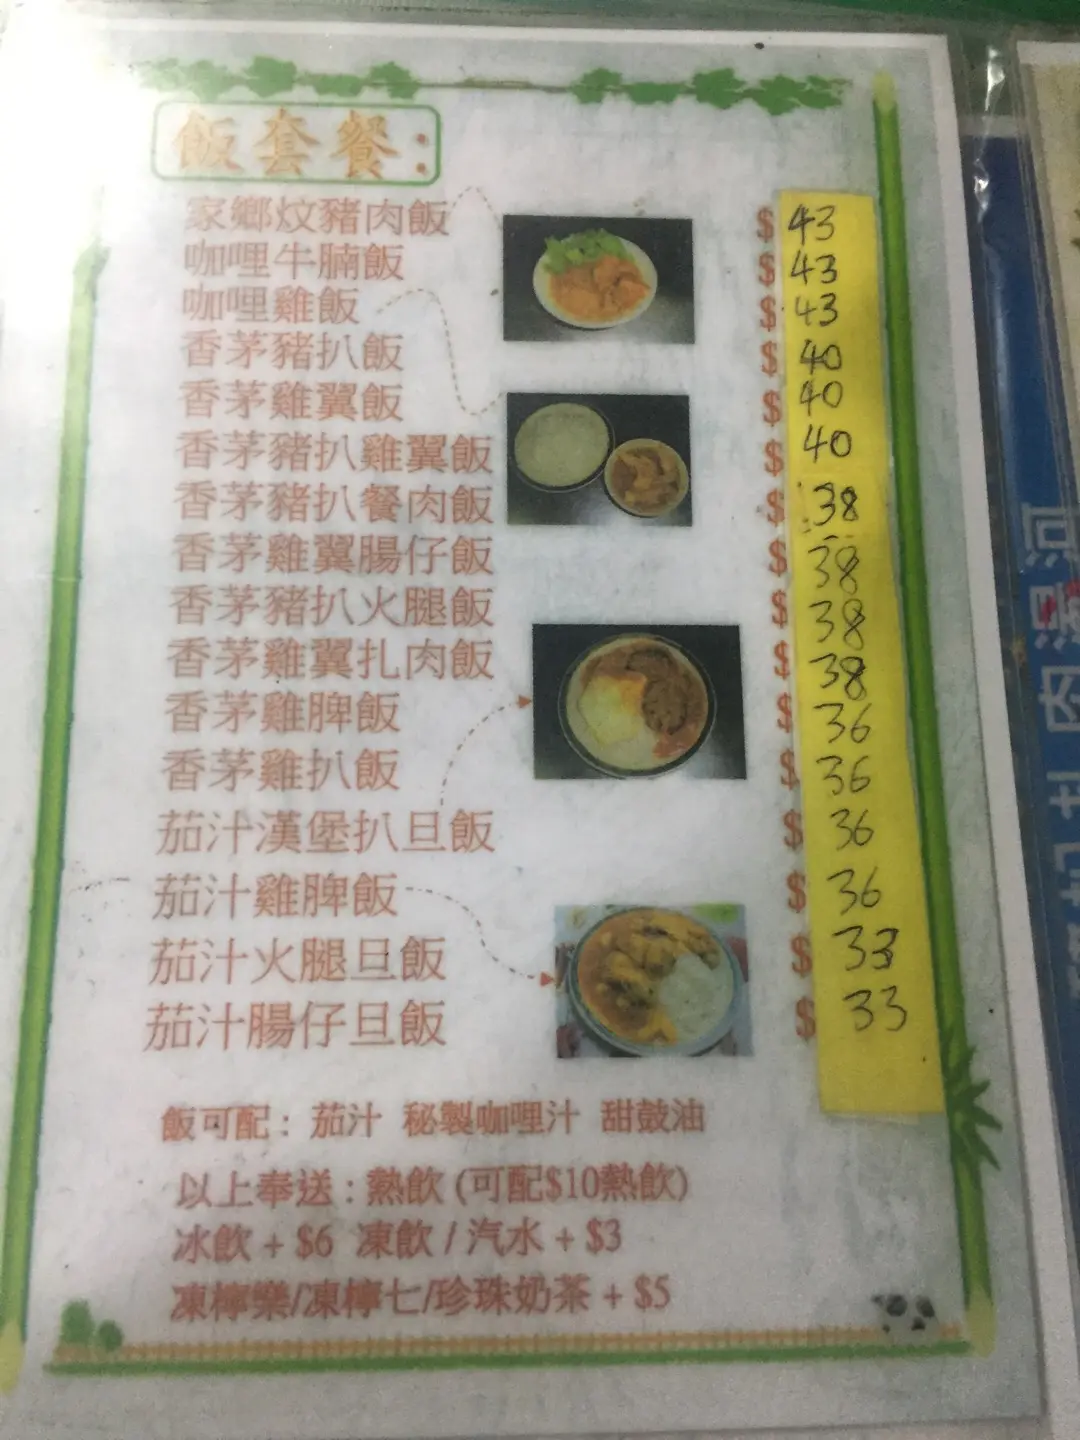 飯套餐：
家鄉炆豬肉飯 $ 43
咖哩牛腩飯 $ 43
咖哩雞飯 $ 43
香茅豬扒飯 $ 40
香茅雞翼飯 $ 40
香茅豬扒雞翼飯 $ 40
香茅豬扒餐肉飯 $ 38
香茅雞翼腸仔飯 $ 38
香茅豬扒火腿飯 $ 38
香茅雞翼扎肉飯 $ 38
香茅雞脾飯 $ 36
香茅雞扒飯 $ 36
茄汁漢堡扒旦飯 $ 36
茄汁雞脾飯 $ 36
茄汁火腿旦飯 $ 33
茄汁腸仔旦飯 $ 33
飯可配：茄汁 秘製咖哩汁 甜鼓油
以上奉送：熱飲 (可配$10熱飲)
冰飲 + $6 凍飲 / 汽水 + $3
凍檸樂/凍檸七/珍珠奶茶 + $5